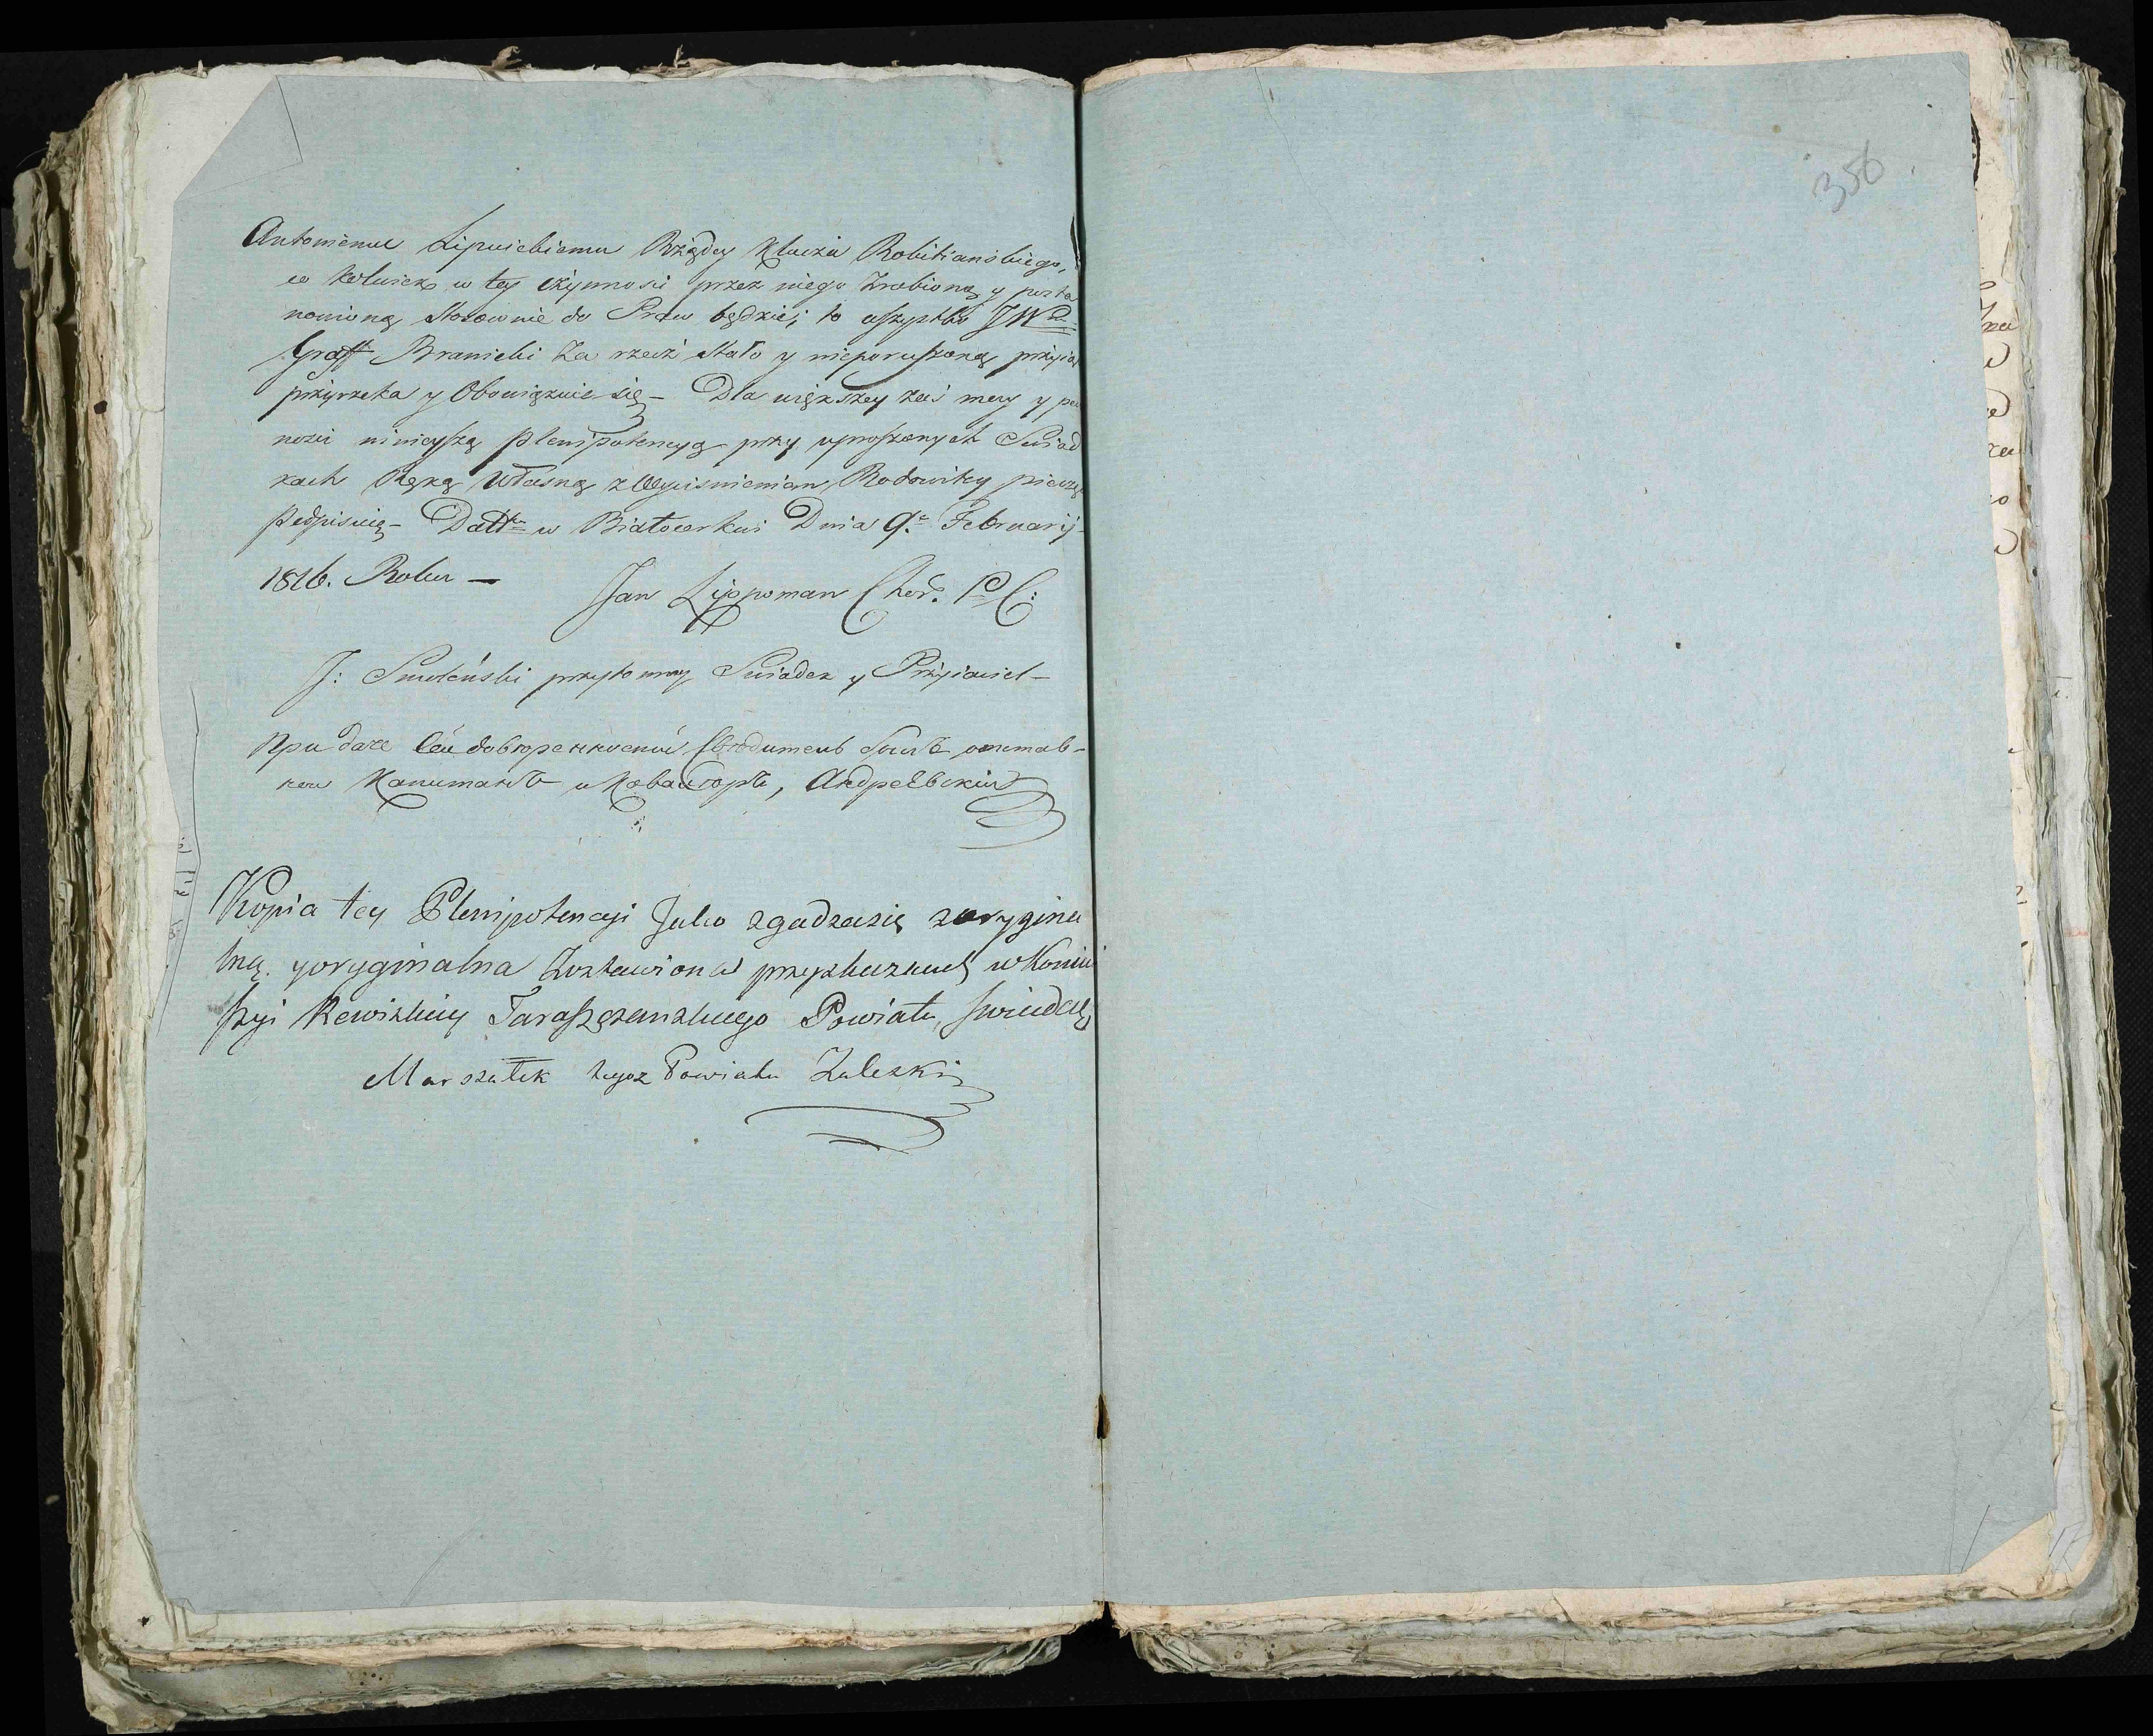 356
Antoniemu Lipnickiemu Rządcy Klucza Rokitianskiego,
co kolwiek w tey czynnosci przez niego Zrobioną y posta
nowioną Stosownie do Praw będzie; to wszystko JW
Graff Branicki Za rzecz Stało y nieporuszoną przyiąć
przyrzeka y Obowiązuie się – Dla większey zaś mocy y pew
nosci ninieyszą plenipotencyą przy uproszonych Swiad
kach Ręką Własną z Wycisnieniem Rodowitey pieczęci
podpisuię – Datt w Białocerkwi Dnia 9. Februarij
1816. Roku –
Jan Lippoman Chor. P. C:
J: Smoleński przytomny Swiadek y Przyiaciel –
При даче сей доверенности свидетель былъ отстав-
ной Капитанъ и Кавалеръ, Андреевский
Kopia tey Plenipotencyi Jako zgadzasię zorygina
lną. yoryginalna Zostawiona przyskazkach w Komi
ssyi Rewizkiey Taraszczanskiego Powiatu, swiadczę
Marszałek tegoz Powiatu Zaleski